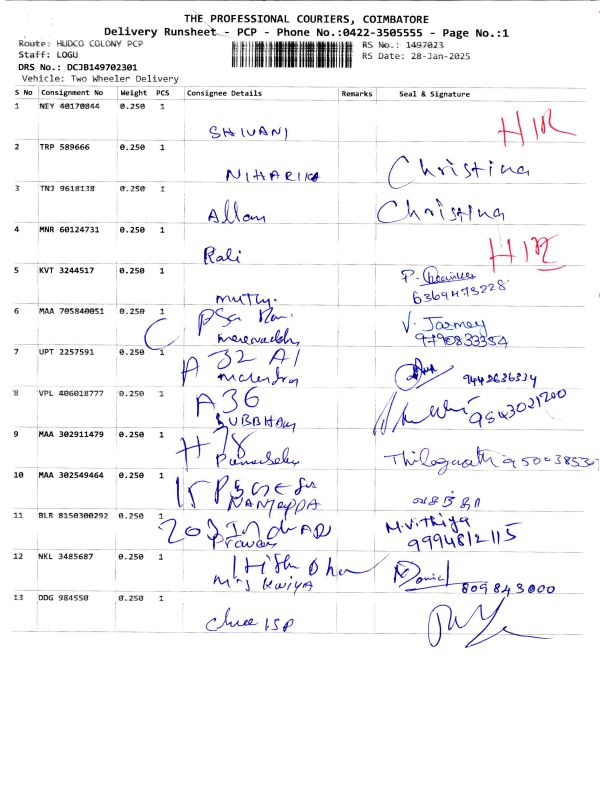 THE PROFESSIONAL COURIERS, COIMBATORE
Delivery Runsheet - PCP - Phone No.:0422-3505555 - Page No.:1
Route: HUDCO COLONY PCP
RS No.: 1497023
Staff: LOGU
RS Date: 28-Jan-2025
DRS No.: DCJB149702301
Vehicle: Two Wheeler Delivery
S No Consignment No Weight PCS Consignee Details Remarks Seal & Signature
1 NEY 40170844 0.250 1
SHIVANI
2 TRP 589666 0.250 1
NIHARIKA Christina
3 TNJ 9618138 0.250 1
Allan Christina
4 MNR 60124731 0.250 1
Rali
5 KVT 3244517 0.250 1
P.
muthu. 6369473228
6 MAA 705840051 0.250 1
V. Jasmey
9790833354
7 UPT 2257591 0.250 1
A 32 A1
Marendra 9442636334
8 VPL 406018777 0.250 1
A 36
SUBBHAN 9843021200
9 MAA 302911479 0.250 1
H 78
10 MAA 302549464 0.250 1
NANJAPPA
11 BLR 8150300292 0.250 1
203
Praveen
M.Vithiya
9994812115
12 NKL 3485687 0.250 1
Daniel
809843000
13 DDG 984550 0.250 1